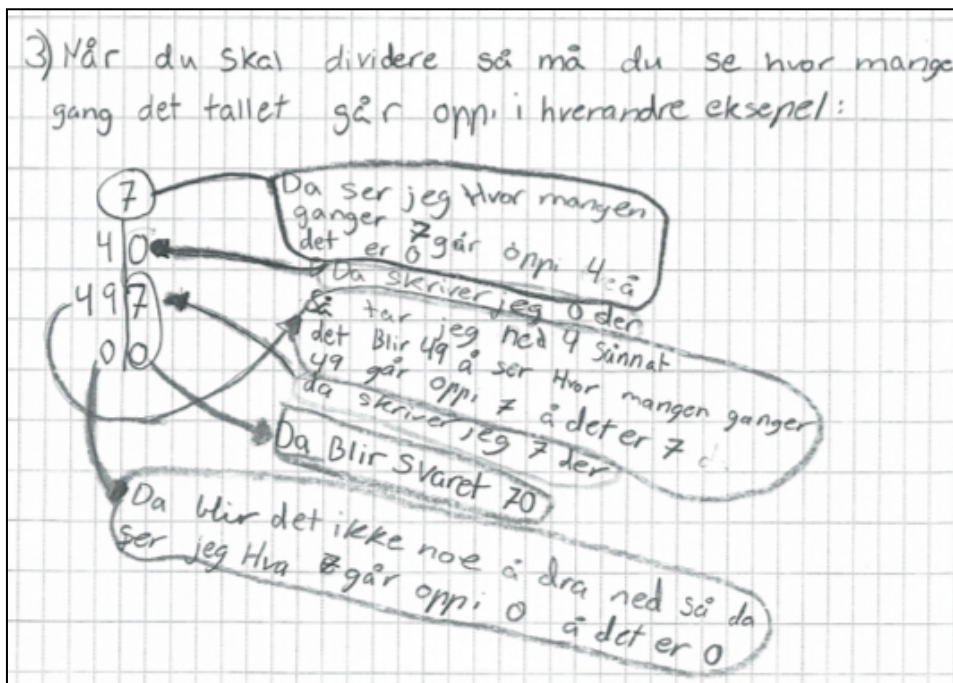 3) Når du skal dividere så må du se hvor mange
gang det tallet går oppi i hverandre eksepel:
7
Da ser jeg Hvor mangen
ganger 7 går oppi 4 å
det er 0
4 0
Da skriver jeg 0 der
49 7
Så tar jeg ned 9 sånnat
det Blir 49 å ser Hvor mangen ganger
49 går oppi 7 å det er 7
0 0
da skriver jeg 7 der
Da Blir svaret 70
Da blir det ikke noe å dra ned så da
ser jeg Hva 7 går oppi 0 å det er 0